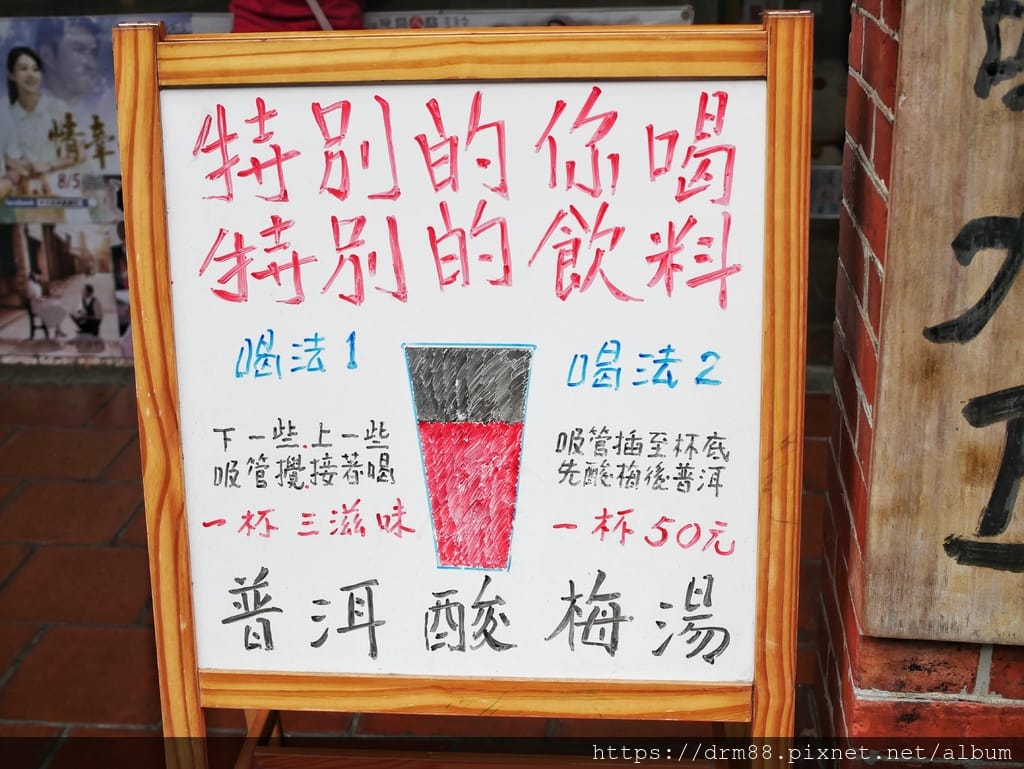 特別的你喝
特別的飲料
喝法1
下一些.上一些
吸管攪.接著喝
一杯 三滋味
喝法2
吸管插至杯底
先酸梅後普洱
一杯50元
普洱酸梅湯
8/5
https://drm88.pixnet.net/album